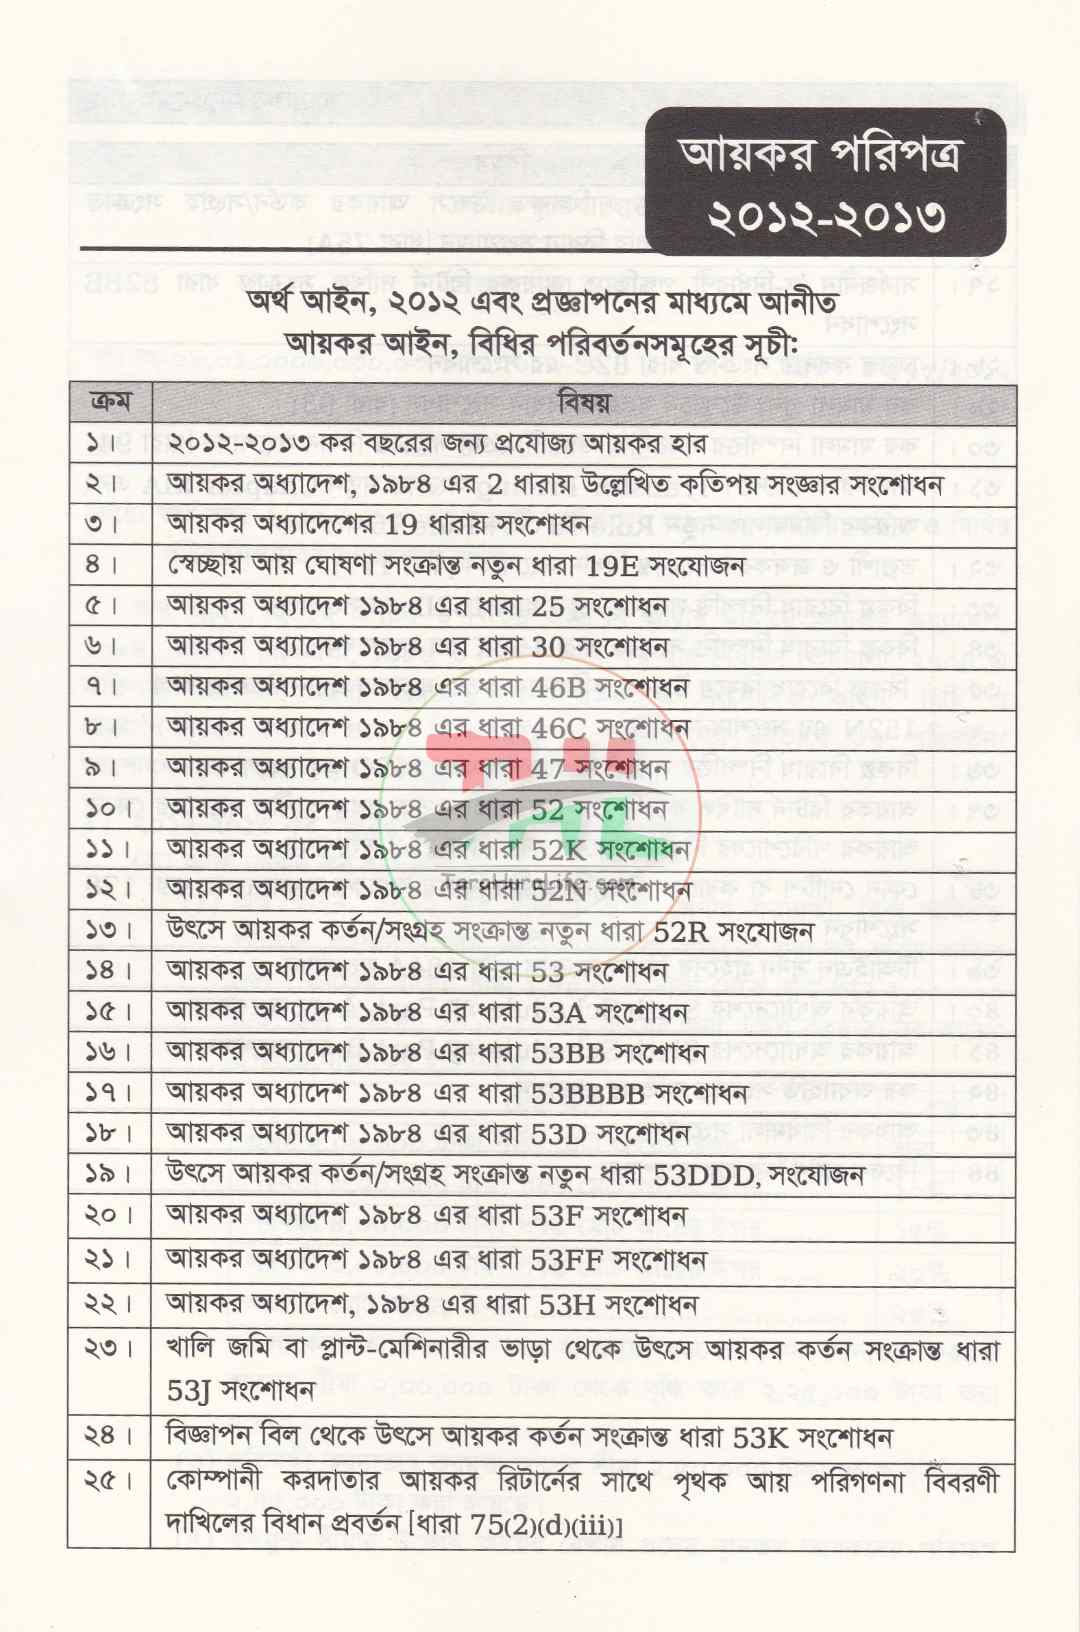 আয়কর পরিপত্র
২০১২-২০১৩
অর্থ আইন, ২০১২ এবং প্রজ্ঞাপনের মাধ্যমে আনীত
আয়কর আইন, বিধির পরিবর্তনসমূহের সূচী:
ক্রম বিষয়
১। ২০১২-২০১৩ কর বছরের জন্য প্রযোজ্য আয়কর হার
২। আয়কর অধ্যাদেশ, ১৯৮৪ এর 2 ধারায় উল্লেখিত কতিপয় সংজ্ঞার সংশোধন
৩। আয়কর অধ্যাদেশের 19 ধারায় সংশোধন
৪। স্বেচ্ছায় আয় ঘোষণা সংক্রান্ত নতুন ধারা 19E সংযোজন
৫। আয়কর অধ্যাদেশ ১৯৮৪ এর ধারা 25 সংশোধন
৬। আয়কর অধ্যাদেশ ১৯৮৪ এর ধারা 30 সংশোধন
৭। আয়কর অধ্যাদেশ ১৯৮৪ এর ধারা 46B সংশোধন
৮। আয়কর অধ্যাদেশ ১৯৮৪ এর ধারা 46C সংশোধন
৯। আয়কর অধ্যাদেশ ১৯৮৪ এর ধারা 47 সংশোধন
১০। আয়কর অধ্যাদেশ ১৯৮৪ এর ধারা 52 সংশোধন
১১। আয়কর অধ্যাদেশ ১৯৮৪ এর ধারা 52K সংশোধন
১২। আয়কর অধ্যাদেশ ১৯৮৪ এর ধারা 52N সংশোধন
১৩। উৎসে আয়কর কর্তন/সংগ্রহ সংক্রান্ত নতুন ধারা 52R সংযোজন
১৪। আয়কর অধ্যাদেশ ১৯৮৪ এর ধারা 53 সংশোধন
১৫। আয়কর অধ্যাদেশ ১৯৮৪ এর ধারা 53A সংশোধন
১৬। আয়কর অধ্যাদেশ ১৯৮৪ এর ধারা 53BB সংশোধন
১৭। আয়কর অধ্যাদেশ ১৯৮৪ এর ধারা 53BBBB সংশোধন
১৮। আয়কর অধ্যাদেশ ১৯৮৪ এর ধারা 53D সংশোধন
১৯। উৎসে আয়কর কর্তন/সংগ্রহ সংক্রান্ত নতুন ধারা 53DDD, সংযোজন
২০। আয়কর অধ্যাদেশ ১৯৮৪ এর ধারা 53F সংশোধন
২১। আয়কর অধ্যাদেশ ১৯৮৪ এর ধারা 53FF সংশোধন
২২। আয়কর অধ্যাদেশ, ১৯৮৪ এর ধারা 53H সংশোধন
২৩। খালি জমি বা প্লান্ট-মেশিনারীর ভাড়া থেকে উৎসে আয়কর কর্তন সংক্রান্ত ধারা
53J সংশোধন
২৪। বিজ্ঞাপন বিল থেকে উৎসে আয়কর কর্তন সংক্রান্ত ধারা 53K সংশোধন
২৫। কোম্পানী করদাতার আয়কর রিটার্নের সাথে পৃথক আয় পরিগণনা বিবরণী
দাখিলের বিধান প্রবর্তন [ধারা 75(2)(d)(iii)]